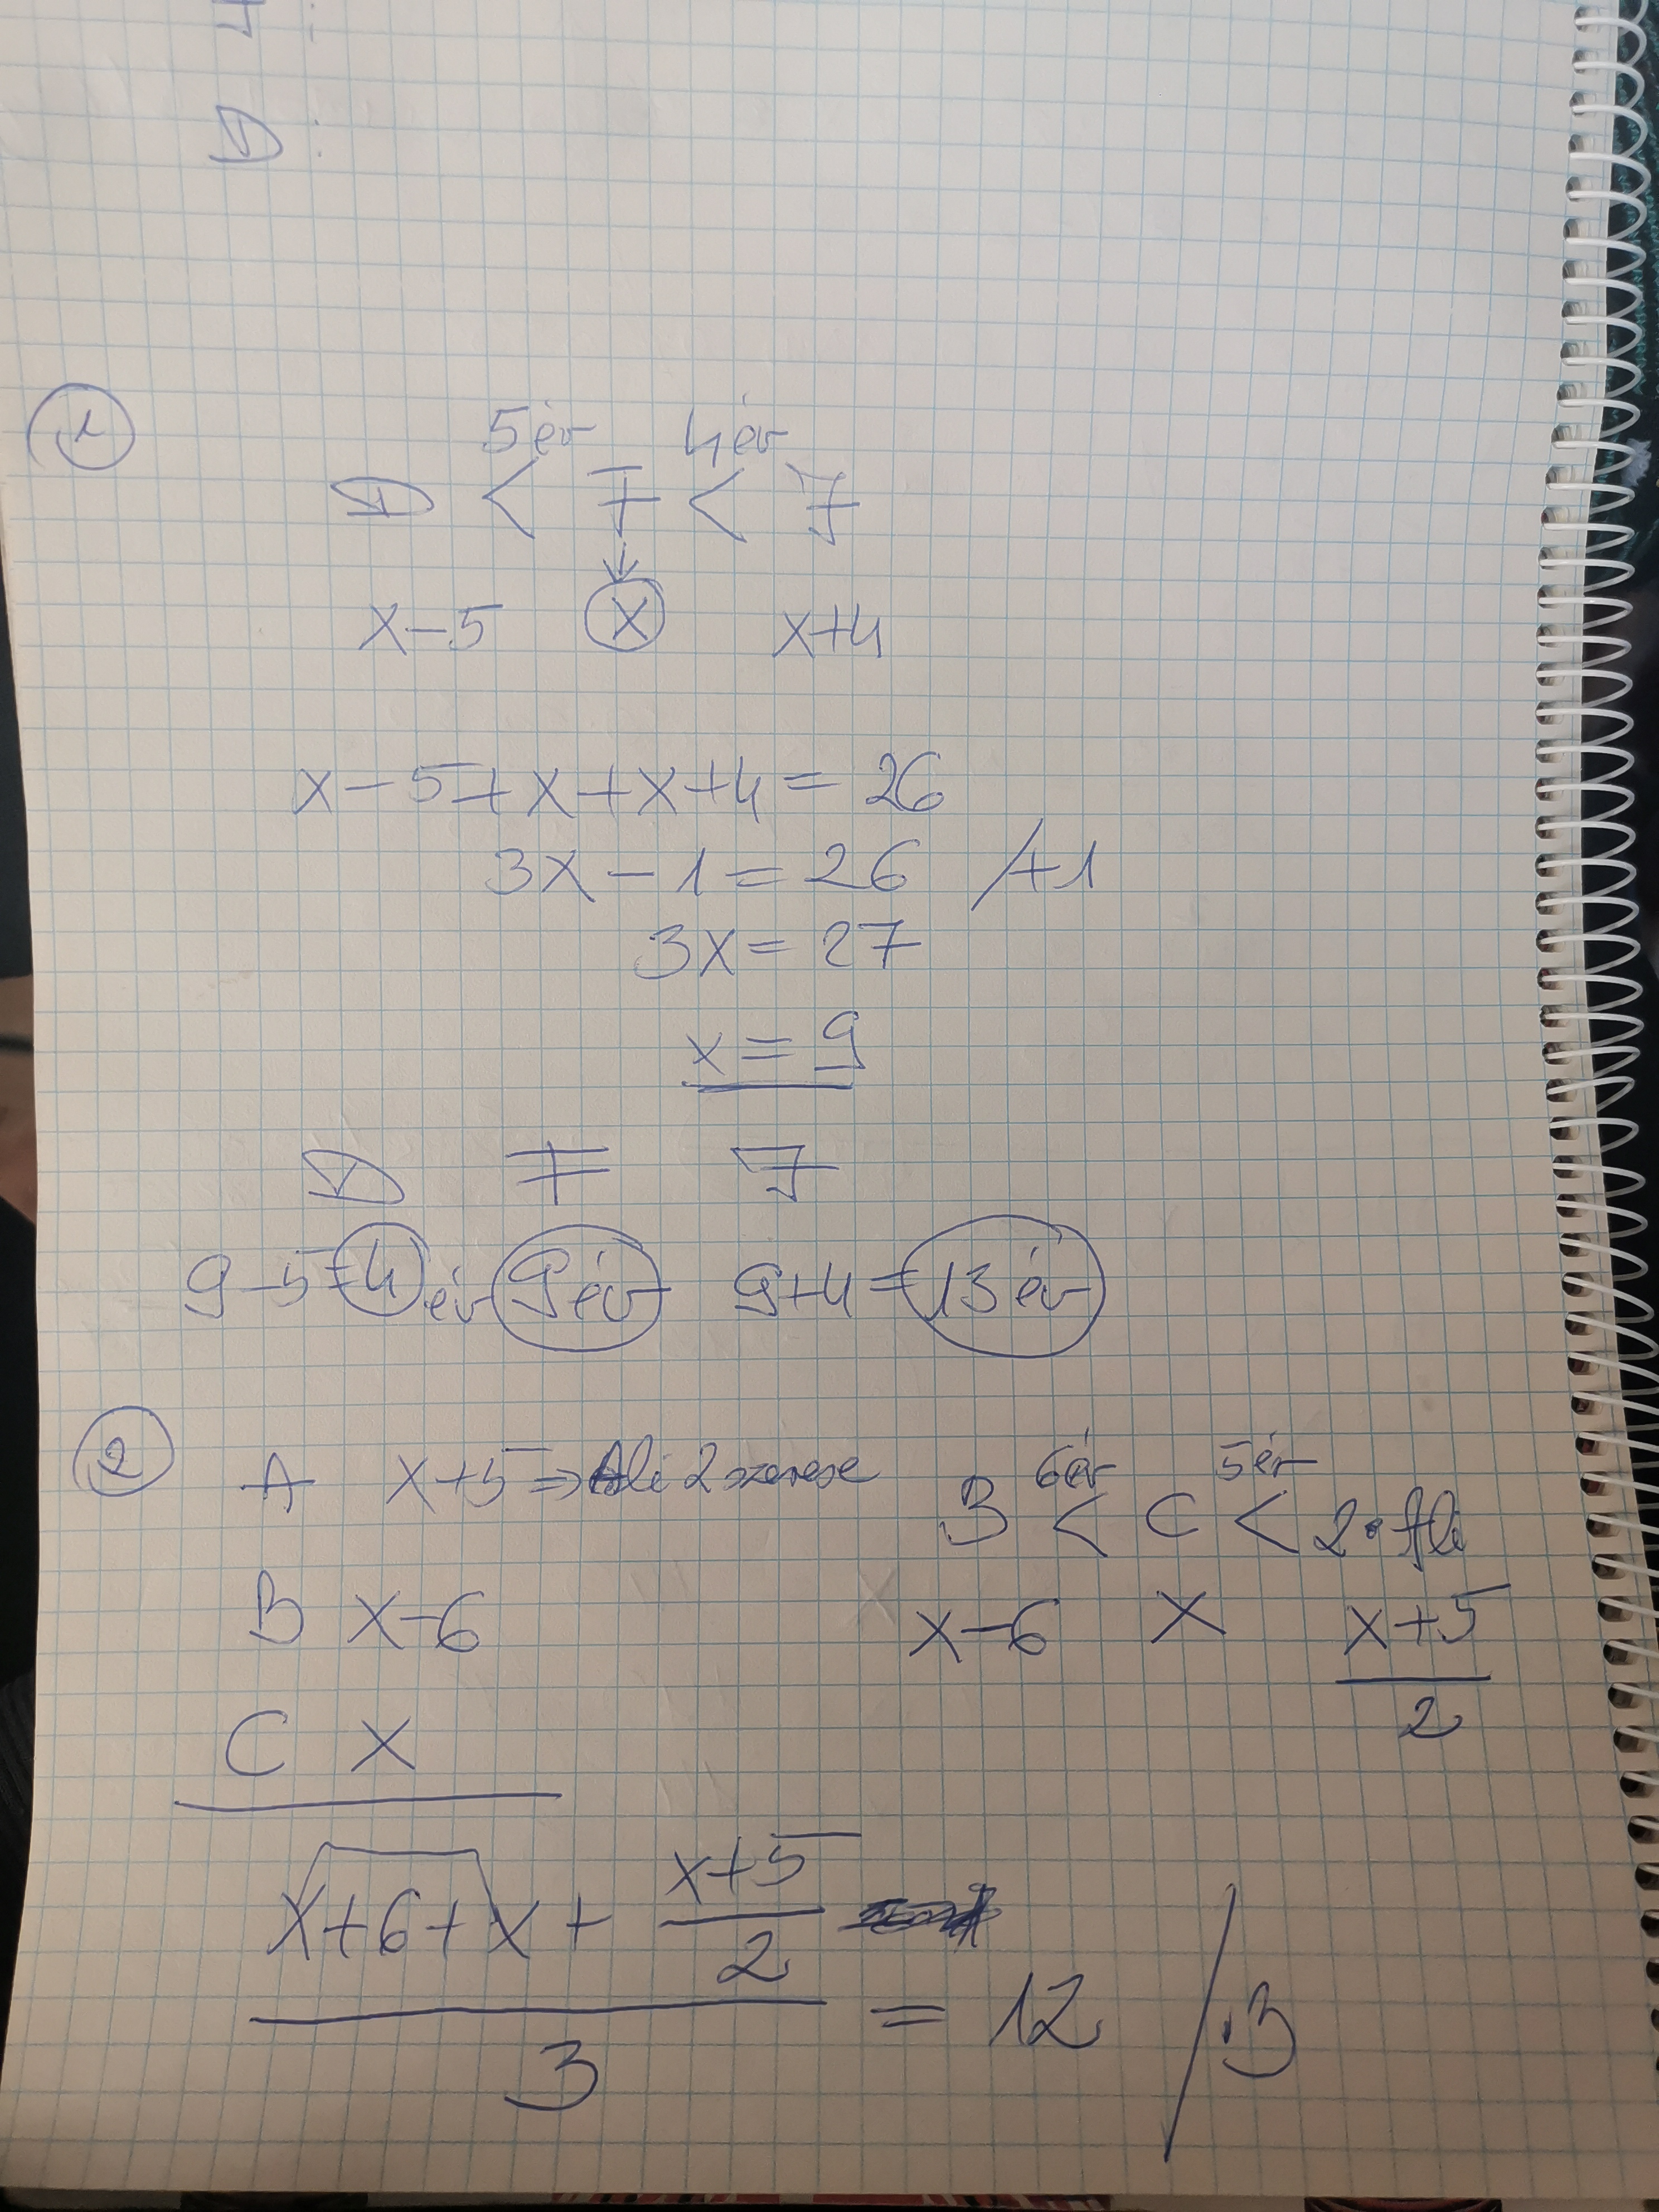 D
1
5év 4év
D < F < J
x-5 x x+4
x-5+x+x+4=26
3x-1=26 /+1
3x=27
x=9
D F J
9-5=4 év 9 év 9+4=13 év
2
A x+5 => Ali 2 szerese
B x-6
C x
6év 5év
B < C < 2·Ali
x-6 x x+5
2
x+6+x+ x+5
2
3
= 12 /·3